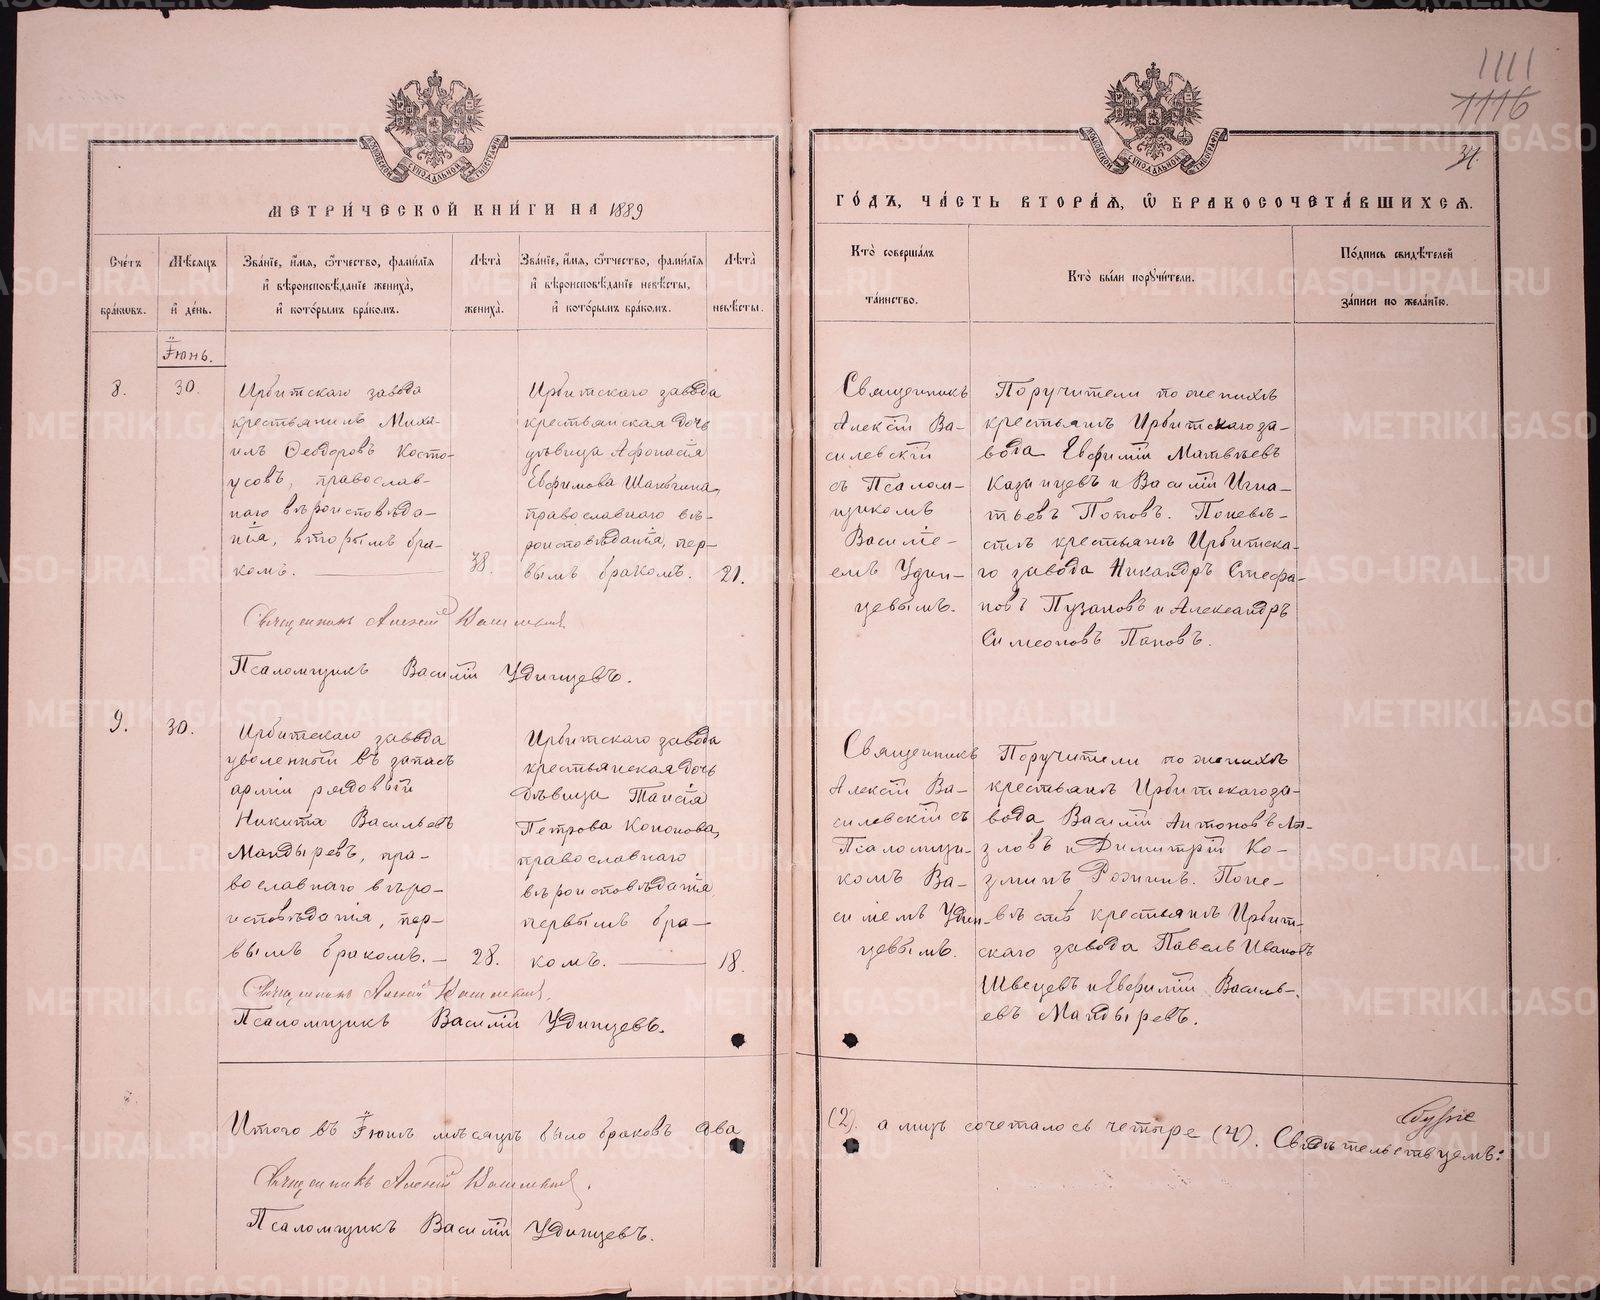 1111
1116
34.
МЕТРИ́ЧЕСКОЙ КНИ́ГИ НА 1889
ГО́ДЪ, ЧА́СТЬ ВТОРА́Я, Ѡ БРАКОСОЧЕТА́ВШИХСЯ.
Сче́тъ бра́кωвъ.
Мѣ́сяцъ и҆ де́нь.
Зва́нїе, и҆́мя, ѻ҆́тчество, фами́лїя
и҆ вѣроисповѣ́данїе жениха̀,
и҆ кото́рымъ бра́комъ.
Лѣ́та жениха̀.
Зва́нїе, и҆́мя, ѻ҆́тчество, фами́лїя
и҆ вѣроисповѣ́данїе невѣ́сты,
и҆ кото́рымъ бра́комъ.
Лѣ́та невѣ́сты.
Кто̀ соверша́лъ
та́инство.
Кто̀ бы́ли поручи́тели.
По́дпись свидѣ́телей
за́писи по жела́нїю.
Іюнь.
8.
30.
Ирбитскаго завода
крестьянинъ Миха-
илъ Ѳеодоровъ Косто-
усовъ, православ-
наго вѣроисповѣда-
нія, вторымъ бра-
комъ.
38.
Ирбитскаго завода
крестьянская дочь
дѣвица Афонасія
Евфимова Шанвгина,
православнаго вѣ-
роисповѣданія, пер-
вымъ бракомъ.
21.
Священникъ
Алексій Ва-
силевскій
съ Псалом-
щикомъ
Василіе-
емъ Удин-
цевымъ.
Поручители по женихѣ
крестьянѣ Ирбитскаго за-
вода Евфимій Матвѣевъ
Казанцевъ и Василій Игна-
тьевъ Поповъ. По невѣ-
стѣ крестьянѣ Ирбитска-
го завода Никандръ Стефа-
новъ Пузановъ и Александръ
Симеоновъ Паповъ.
Священникъ Алексій Василевскій
Псаломщикъ Василій Удинцевъ.
9.
30.
Ирбитскаго завода
уволенный въ запасъ
арміи рядовый
Никита Васильевъ
Мандыревъ, пра-
вославнаго вѣро-
исповѣданія, пер-
вымъ бракомъ.
28.
Ирбитскаго завода
крестьянская дочь
дѣвица Таисія
Петрова Кононова,
православнаго
вѣроисповѣданія
первымъ бра-
комъ.
18.
Священникъ
Алексій Ва-
силевскій съ
Псаломщи-
комъ Ва-
силіемъ Удин-
цевымъ.
Поручители по женихѣ
крестьянѣ Ирбитскаго за-
вода Василій Антоновъ
зловъ и Димитрій Ко-
зминъ Рожинъ. По не-
вѣстѣ крестьянѣ Ирбит-
скаго завода Павелъ Ивановъ
Швецевъ и Евфимій Василь-
евъ Мандыревъ.
Священникъ Алексій Василевскій.
Псаломщикъ Василій Удинцевъ.
Итого въ Іюнѣ мѣсяцѣ было браковъ два
(2). а лицъ сочеталось четыре (4). Свидѣтельствуемъ:
Священникъ Алексій Василевскій.
Псаломщикъ Василій Удинцевъ.
METRIKI.GASO-URAL.RU